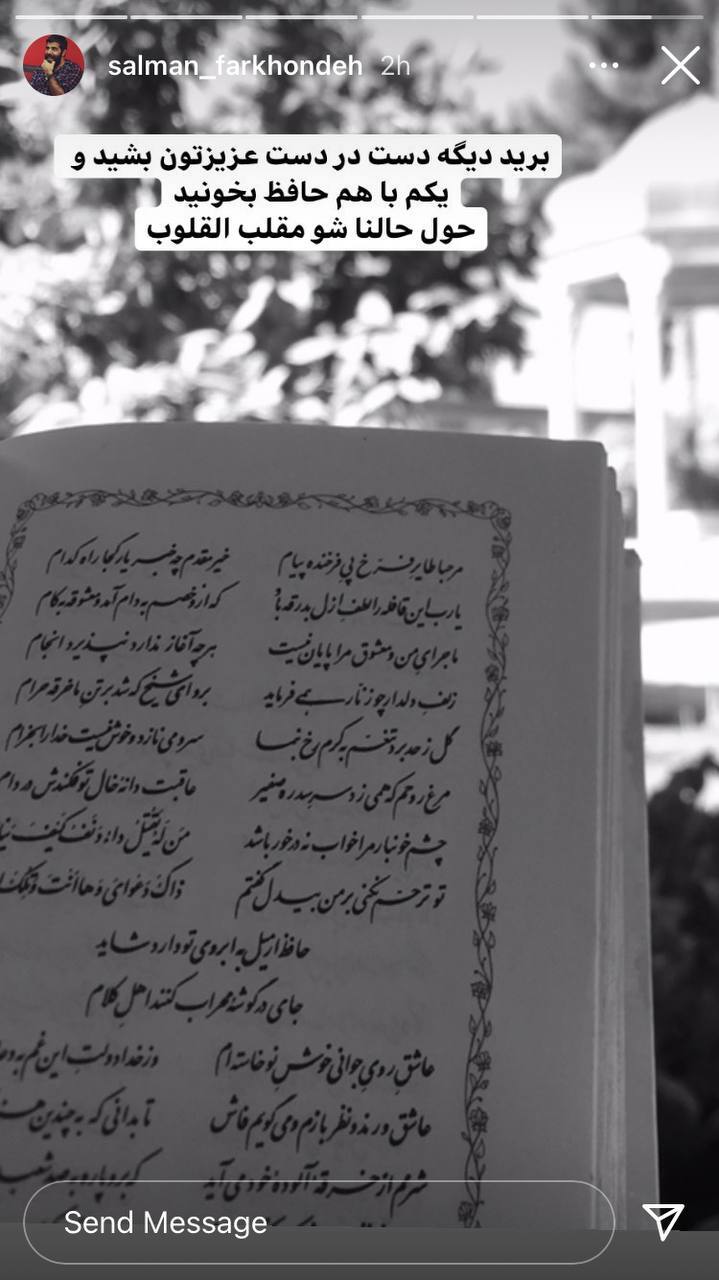 salman_farkhondeh 2h
برید دیگه دست در دست عزیزتون بشید و
یکم با هم حافظ بخونید
حول حالنا شو مقلب القلوب
مرحبا طایر فرخ پی فرخنده پیام خیر مقدم چه خبر یار کجا راه کدام
یارب این قافله را لطف ازل بدرقه باد که از و خصم به دام آمد و معشوقه به کام
ماجرای من و معشوق مرا پایان نیست هر چه آغاز ندارد نپذیرد انجام
زلف دلدار چو زنار همی فرماید برو ای شیخ که شد بر تن ما خرقه حرام
گل ز حد برد تنعم به کرم رخ بنما سرو می نازد و خوش نیست خدا را بخرام
مرغ روحم که همی زد ز سر سدره صفیر عاقبت دانه خال تو فکندش در دام
چشم خونبار مرا خواب نه در خور باشد مَن لَهُ یَقتُلُ داءٌ دَنَفٌ کَیفَ
تو ترحم نکنی بر من بیدل گفتم ذاکَ دَعوایَ وَ ها اَنتَ وَ تِلکَ
حافظ ار میل به ابروی تو دارد شاید
جای در گوشه محراب کنند اهل کلام
عاشق روی جوانی خوش نو خاسته ام وز خدا دولت این غم به دعا
عاشق و رند و نظر بازم و می گویم فاش تا بدانی که به چندین
شرم از خرقه آلوده خود می آید که برو پاره به صد
Send Message